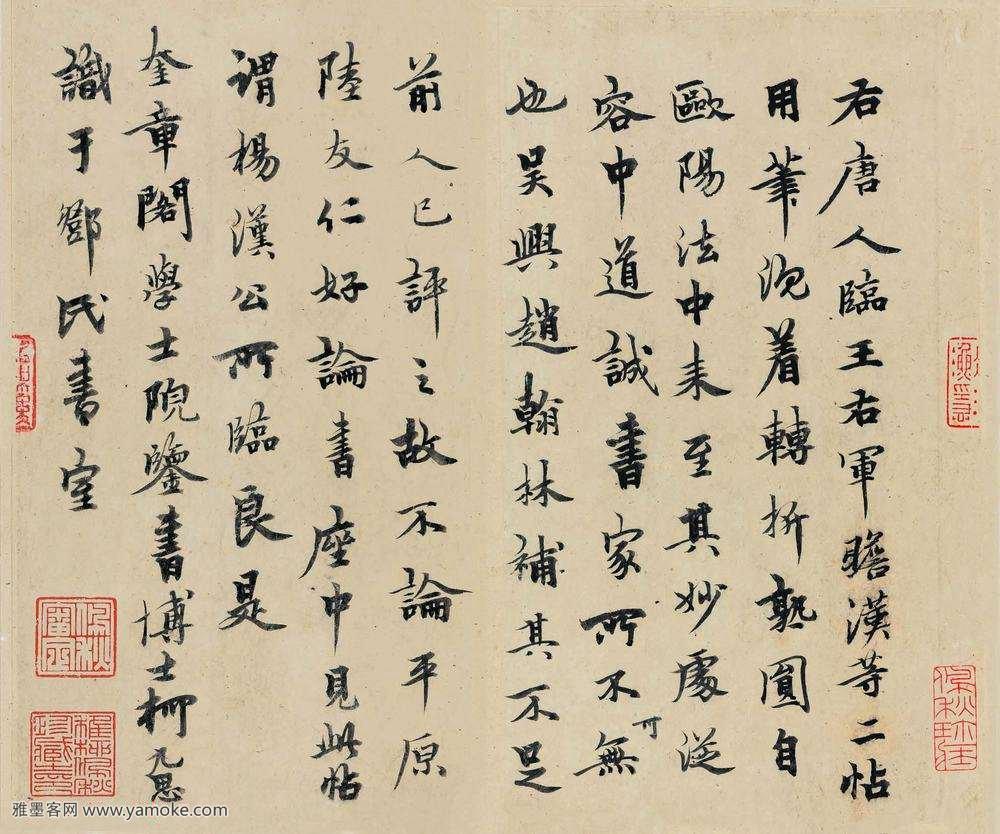 右唐人臨王右軍瞻漢等二帖
用筆沉着轉折熟圓自
歐陽法中来至其妙處從
容中道誠書家所不可無
也吴興趙翰林補其不足
前人已評之故不論平原
陸友仁好論書座中見此帖
謂楊漢公所臨良是
奎章閣學士院鑒書博士柯九思
識于鄧氏書室
雅墨客网 www.yamoke.com